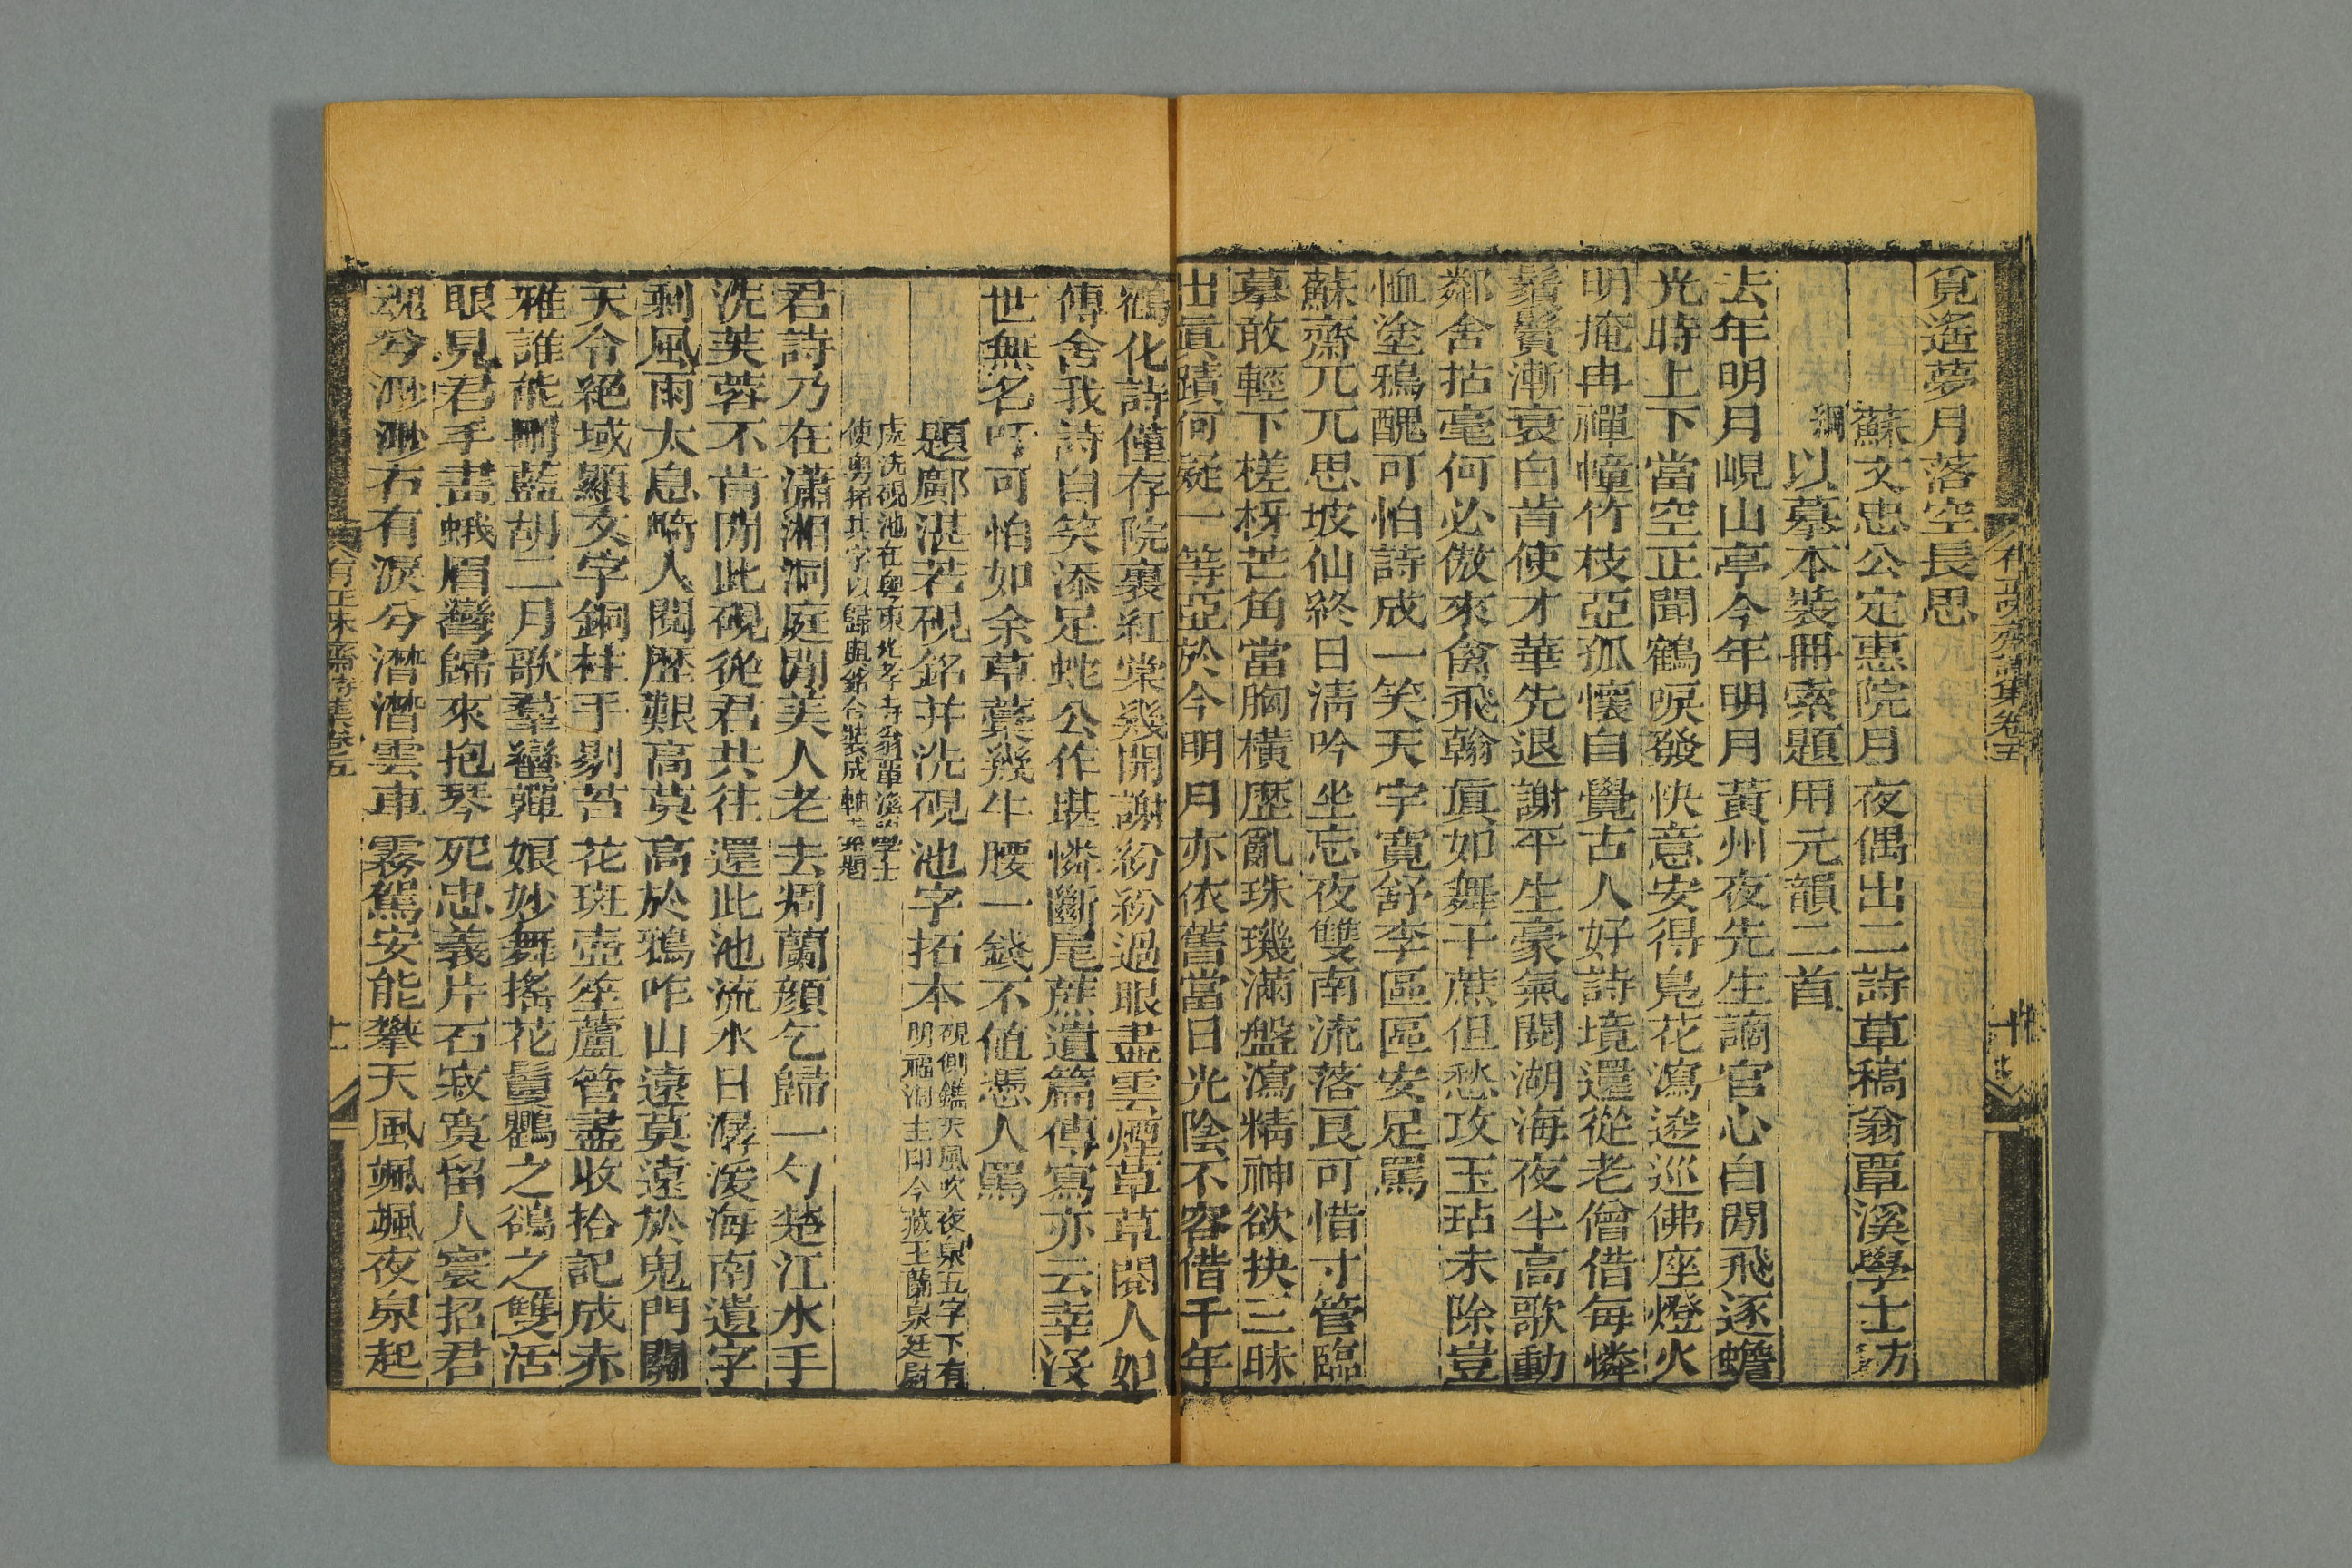 覓遙夢月落空長思
蘇文忠公定惠院月夜偶出二詩草稿翁覃溪學士方
綱以摹本裝冊索題用元韻二首
去年明月峴山亭今年明月黃州夜先生謫官心自閒飛逐蟾
光時上下當空正聞鶴唳發快意安得鳧花瀉逡巡佛座燈火
明掩冉禪幢竹枝亞孤懷自覺古人好詩境還從老僧借每憐
鬚鬢漸衰白肯使才華先退謝平生豪氣闊湖海夜半高歌動
鄰舍拈毫何必倣來禽飛翰真如舞干蔗但愁攻玉玷未除豈
恤塗鴉醜可怕詩成一笑天宇寬舒李區區安足罵
蘇齋兀兀思坡仙終日淸吟坐忘夜雙南流落良可惜寸管臨
摹敢輕下槎枒芒角當胸橫歷亂珠璣滿盤瀉精神欲抉三昧
出真蹟何疑一等亞於今明月亦依舊當日光陰不容借千年
鶴化詩僅存院裏紅棠幾開謝紛紛過眼盡雲煙草草閱人如
傳舍我詩自笑添足蛇公作堪憐斷尾蔗遺篇傳寫亦云幸沒
世無名吁可怕如余草藁幾牛腰一錢不値憑人罵
題鄺湛若硯銘幷洗硯池字拓本
硯側鐫天風吹夜泉五字下有
明福洞主印今藏王蘭泉廷尉
處洗硯池在粵東光孝寺翁覃溪學士
使粵拓其字以歸與銘合裝成軸索題
君詩乃在瀟湘洞庭閒美人老去凋蘭顏乞歸一勺楚江水手
洗芙蓉不肯閒此硯從君共往還此池流水日潺湲海南遺字
剩風雨太息畸人閱歷艱高莫高於鴉咋山遠莫遠於鬼門關
天令絕域顯文字銅柱手剔苔花斑壺笙蘆管盡收拾記成赤
雅誰能刪藍胡二月歌羣巒嚲娘妙舞搖花鬘鸜之鵒之雙活
眼見君手畫蛾眉彎歸來抱琴死忠義片石寂寞留人寰招君
魂兮渺渺石有淚兮潸潸雲車霧駕安能攀天風颯颯夜泉起